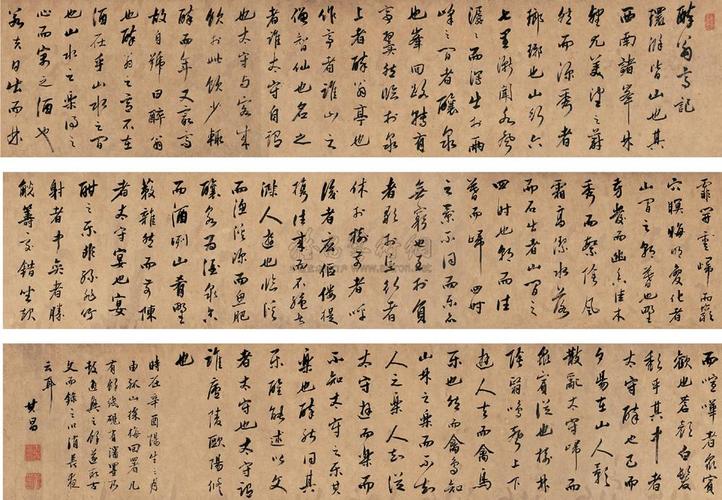 醉翁亭記
環滁皆山也其
西南諸峯林
壑尤美望之蔚
然而深秀者
瑯琊也山行六
七里漸聞水聲
潺潺而瀉出於兩
峰之間者釀泉
也峯回路轉有
亭翼然臨於泉
上者醉翁亭也
作亭者誰山之
僧智仙也名之
者誰太守自謂
也太守與客來
飲於此飲少輒
醉而年又最高
故自號曰醉翁
也醉翁之意不在
酒在乎山水之間
也山水之樂得之
心而寓之酒也
若夫日出而林
霏開雲歸而巖
穴暝晦明變化者
山間之朝暮也野
芳發而幽香佳木
秀而繁陰風
霜高潔水落
而石出者山間之
四時也朝而往
暮而歸四時
之景不同而樂亦
無窮也至於負
者歌於塗行者
休於樹前者呼
後者應傴僂提
攜往來而不絕者
滁人遊也臨溪
而漁溪深而魚肥
釀泉為酒泉香
而酒冽山肴野
蔌雜然而前陳
者太守宴也宴
酣之樂非絲非竹
射者中奕者勝
觥籌交錯坐起
而諠譁者衆賓
歡也蒼顏白髮
頹乎其中者
太守醉也已而
夕陽在山人影
散亂太守歸而
賓從也樹林
陰翳鳴聲上下
遊人去而禽鳥
樂也然而禽鳥知
山林之樂而不知
人之樂人知從
太守遊而樂而
不知太守之樂其
樂也醉能同其
樂醒能述以文
者太守也太守謂
誰廬陵歐陽修
也
時在辛酉陽生之月
由孤山探梅回署几
有綾硯有瀋墨乃
故逸興之餘遂取古
文而錄之以消長夜
云耳
其昌